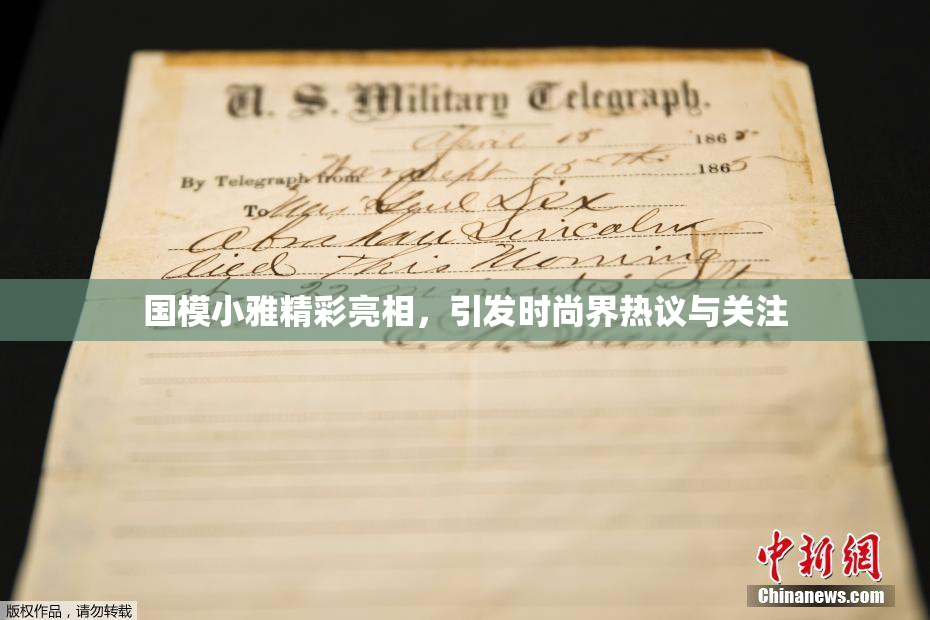 U. S. Military Telegraph.
April 15 1865
By Telegraph from Wash Sept 15th 1865
To Maj Genl Dix
Abraham Lincoln
died This Morning
22 minutes after
国模小雅精彩亮相，引发时尚界热议与关注
E. M. Stanton
中新網
Chinanews.com
版权作品，请勿转载